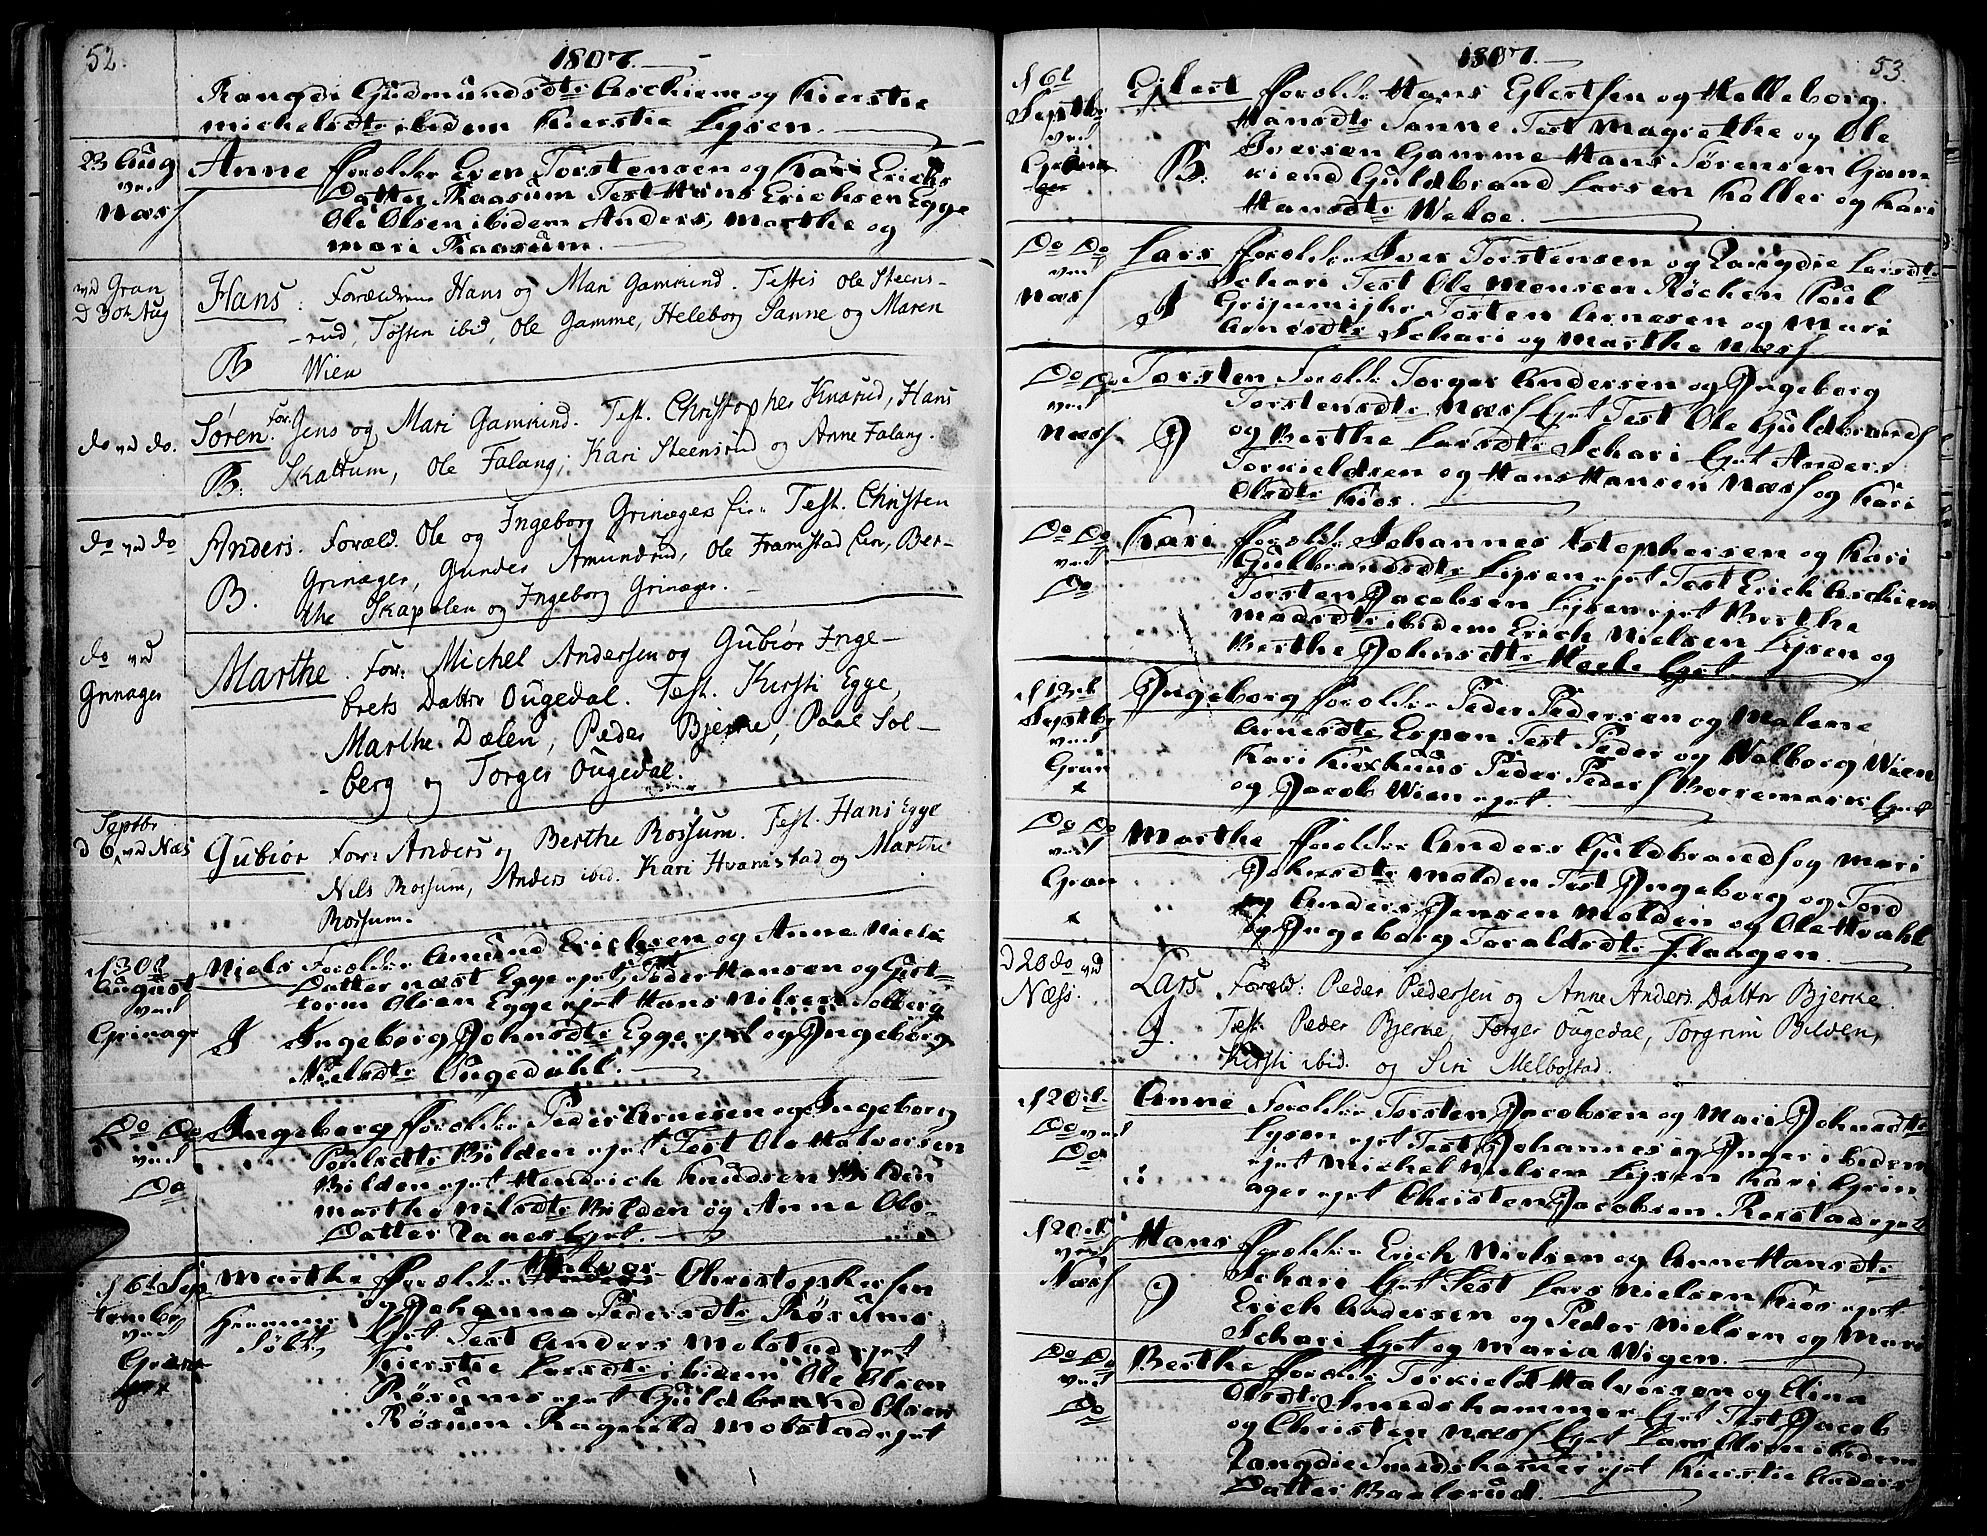 52.
1807.
Rangdi Gudmundsdtr Aschiem og Kierstie
Michelsdtr ibidem Kierstie Lysen.
23 Aug
ved
Næs
Anne Forældre Even Torstensen og Kari Erichs
Datter Raasum Test Hans Erichsen Egge
Ole Olsen ibidem Anders, Marthe og
Mari Raasum.
ved Gran
d 30t Aug
Hans: Forældrene Hans og Mari Gamkind. Testes Ole Steens-
rud, Tosten ibid, Ole Gamme, Heleborg Sanne og Maren
B Wien
do ved do.
Søren. For. Jens og Mari Gamkind. Test. Christopher Knarud, Hans
B. Skattum, Ole Falang, Kari Steensrud og Anne Falang.
do ved do
Anders. Foræld. Ole og Ingeborg Grinager Test. Christen
Grinager, Gunder Amundrud, Ole Framstad Ber-
B. the Skapelen og Ingeborg Grinager.
do ved
Grinager
Marthe. For. Michel Andersen og Gubiør Inge-
brets Datter Ougedal. Test. Kirsti Egge,
Marthe Dælen, Peder Bjerke, Paal Sol-
berg og Torger Ougedal.
Septbr
d 6 ved Næs
Gubiør For: Anders og Berthe Rossum. Test. Hans Egge
Nils Rossum, Anders ibid. Kari Hvamstad og Marthe
Rossum.
d 30t
August
ved
Grinager
Niels Forældre Amund Erichsen og Anne Niels
Datter næst Egge ejet, Test Peder Hansen og Gut-
torm Olsen Egge ejet Hans Nilsen Solberg
J Ingeborg Johnsdtr Egge ejet og Ingeborg
Nielsdtr Ougedahl.
Do Do
ved
Do
Ingeborg Forældre Peder Arnesen og Ingeborg
Poulsdtr Bilden ejet Test Ole Halvorsen
Bilden ejet Hendrich Knudsen Bilden
Marthe Nilsdtr Bilden og Anne Ols-
Datter
d 6t Sep
tember
ved
Marthe Forældre Halvor Christophersen
Hiemme
døbt
og Johanna Pedersdtr Røsums
Ejet Test Anders Molstad ejet
Kierstie Larsdtr ibidem Ole Olsen
Røsums ejet Guldbrand Olsen
Røsum Ragnild Molstad ejet
53.
1807.
d 6t
Septbr
ved
Eilert Forældre Hans Eilertsen og Helleborg
Hansdtr Sanne Test Magrethe og Ole
Iversen Gamme Hans Sørensen Gam
B. kiend Guldbrand Larsen Koller og Kari
Hansdtr
Do Do
ved
Næs
Lars Forældre Iver Torstensen og Rangdie Larsdtr
Schari Test Ole Monsen Røchen Poul
J Torsten Arnesen og Mari
Arnesdtr Schari og Marthe Næs
Do Do
ved
Næs
Torsten Forældre Torger Andersen og Ingeborg
Torstensdtr Næs Ejet Test Ole Guldbrands
J og Berthe Larsdtr Schari Ejet Anders
Torkieldsen og Hans Hansen Næs og Kari
Olsdtr Kios.
Do Do
ved
Do
Kari Forældre Johannes Stephersen og Kari
Gulbrandsdtr Lysen ejet Test Erich Aschiem
Torsten Jacobsen Lysen ejet Berthe
madsdtr ibidem Erich Nielsen Lysen og
Berthe Johnsdtr Ejet.
d 13t
Septbr
ved
Gran
x
Ingeborg Forældre Peder Pedersen og Malene
Arnesdtr Espen Test Peder og Walborg Wien
Kari Kirkhuus Peder Peders Borremark Ejet
og Jacob Wien ejet.
Do Do
ved
Gran
x
Marthe Forældre Anders Guldbrands og Mari
Johnsdtr Molden Test Ingeborg og Tord
og Anders Jensen Molden og Ole Hvahl
og Ingeborg Toraldsdtr Flangen.
d 20 do ved
Næss.
Lars Foræld: Peder Pedersen og Anne Anders Datter Bjerke.
J. Test. Peder Bjerke, Torger Ougedal, Torgrim Bilden,
Kirsti ibid. og Siri Melbostad.
d 20t
Do ved
Do
Anne Forældre Torsten Jacobsen og Mari Johnsdtr
Lysen ejet Test Johannes og Inger ibidem
ejet Michel Nielsen Lysen Kari Grin
ager ejet Christen Jacobsen Rekstad ejet
d 20t
ved
Næs
Hans Forældre Erich Nielsen og Anne Hansdtr
Schari Ejet Test Lars Nielsen Kios ejet
J Erich Andersen og Peder Nielsen og Mari
Schari Ejet og Maria Wigen.
Do Do
ved
Do
Berthe Forældre Torkield Halvorsen og Elina
Olsdtr Smedshammer Ejet Test Jacob
og Christen Næs Ejet Lars Olsen ibidem
Rangdie Smedshamer ejet Kierstie Anders
Datter Baalerud.